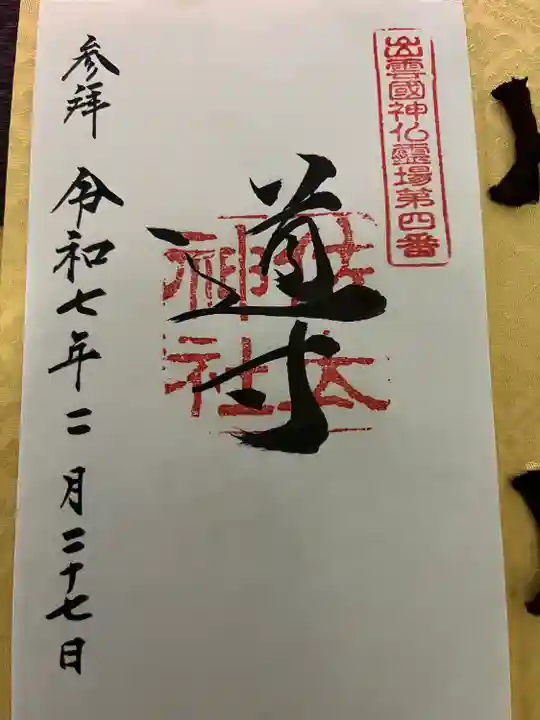 出雲國神仏靈場第四番
導
佐太
神社
参拜
令和七年二月二十七日